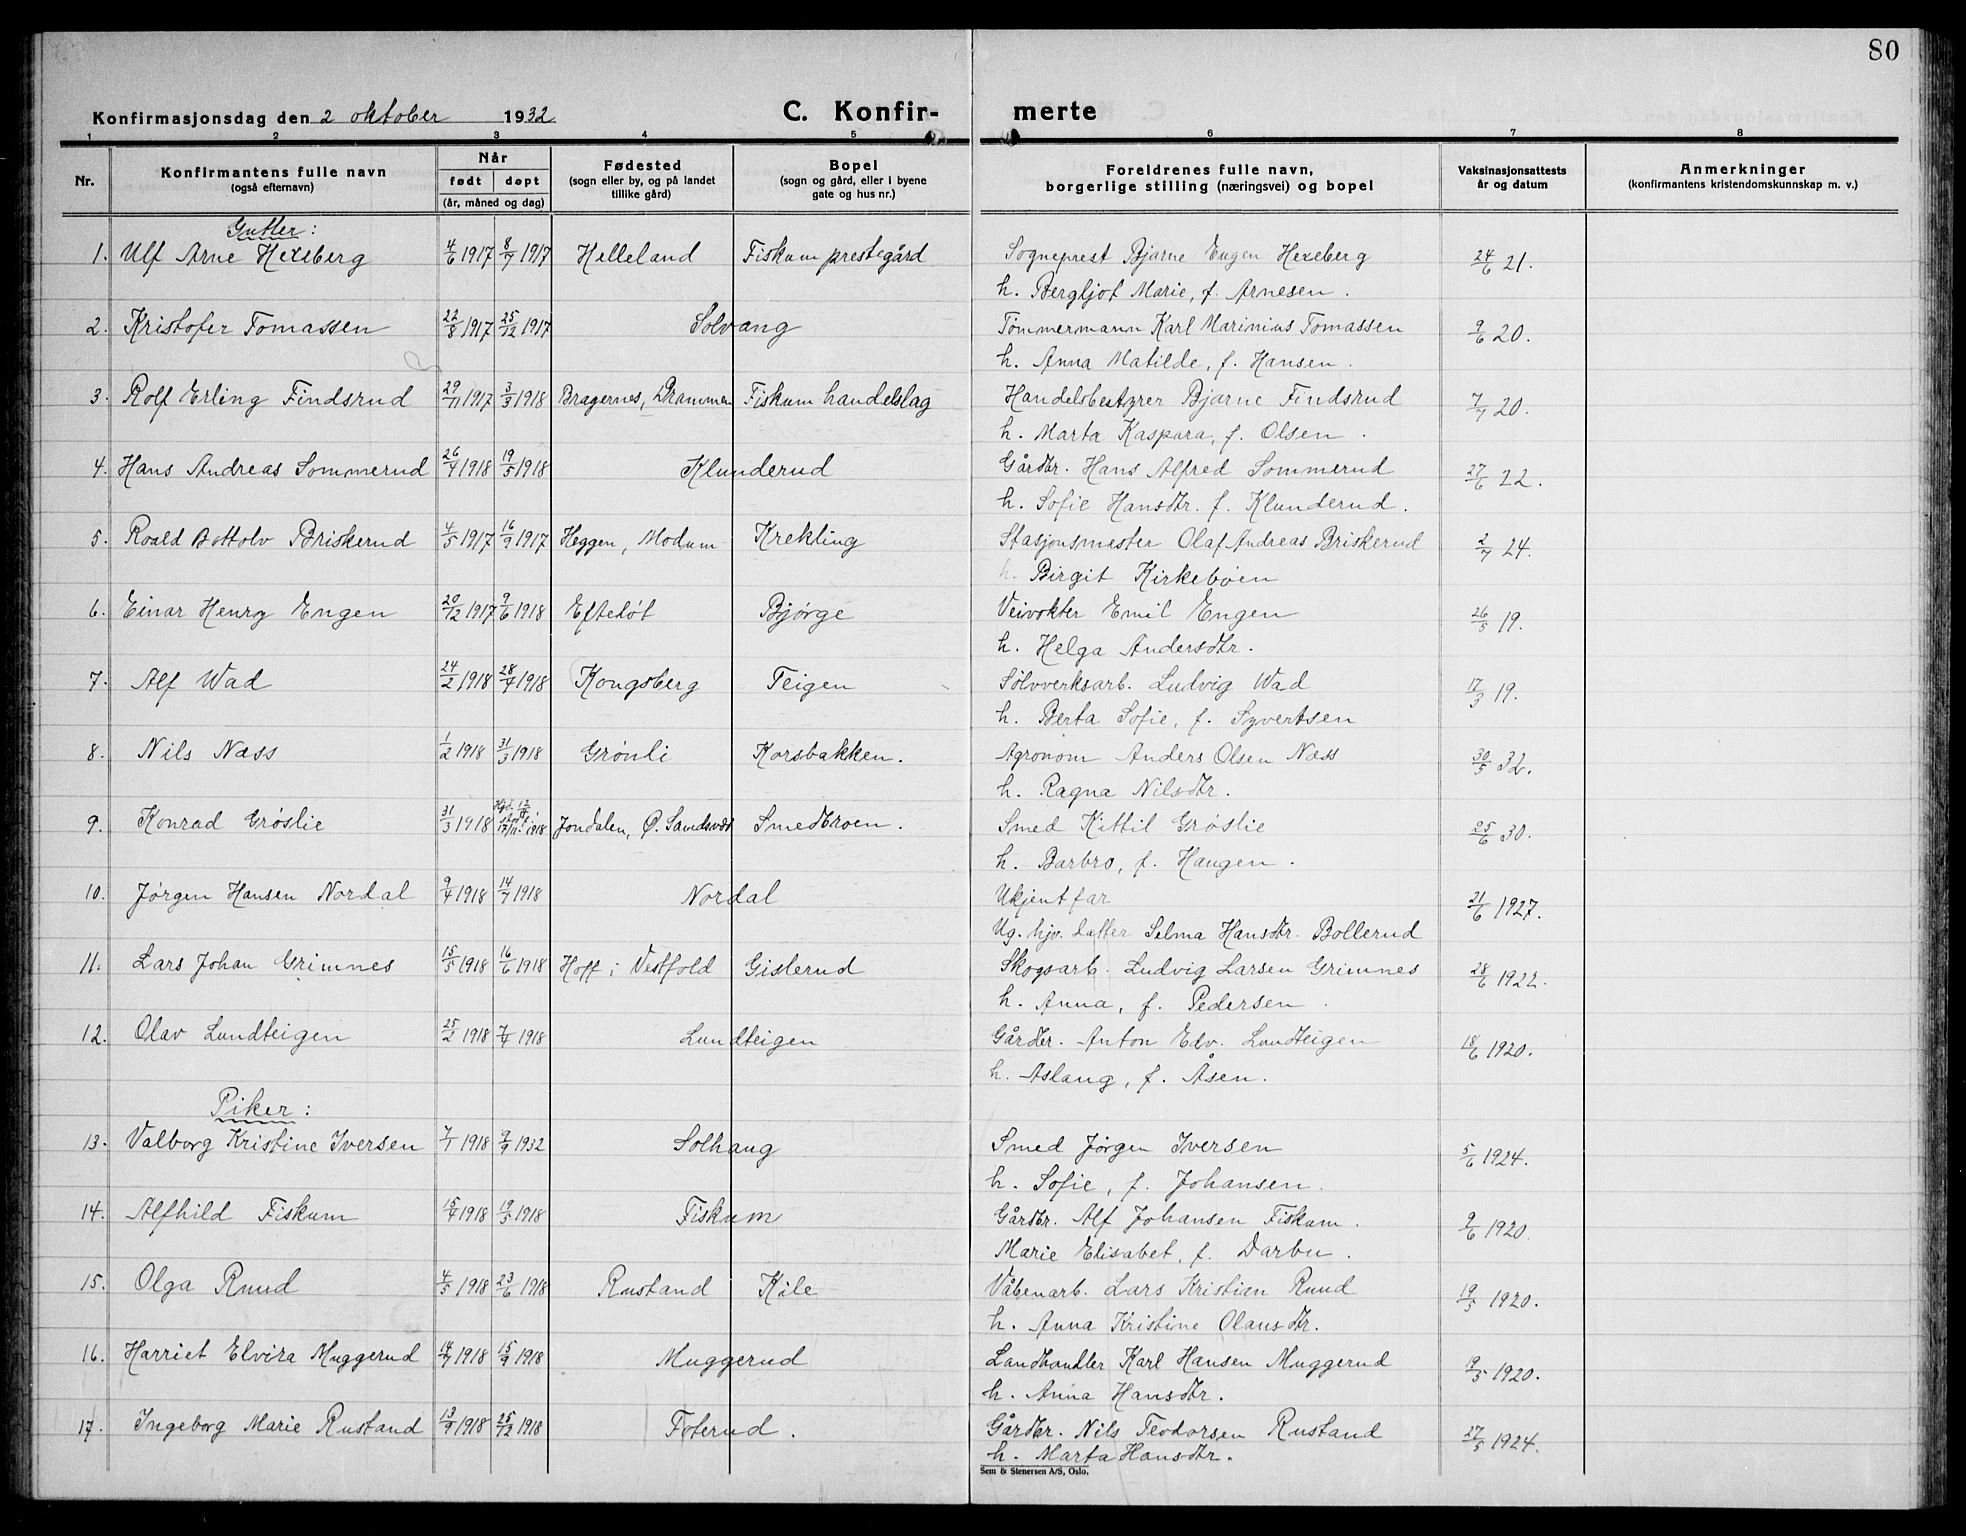 80
Konfirmasjonsdag den 2 oktober 1932 C. Konfir- merte
1 2 3 4 5 6 7 8
Nr. Konfirmantens fulle navn (også efternavn) Når født døpt (år, måned og dag) Fødested (sogn eller by, og på landet tillike gård) Bopel (sogn og gård, eller i byene gate og hus nr.) Foreldrenes fulle navn, borgerlige stilling (næringsvei) og bopel Vaksinasjonsattests år og datum Anmerkninger (konfirmantens kristendomskunnskap m. v.)
Gutter:
1. Ulf Arne Hexeberg 4/6 1917 8/7 1917 Helleland Fiskum prestegård Sogneprest Bjarne Eugen Hexeberg 24/6 21.
h. Bergljot Marie, f. Arnesen.
2. Kristofer Tomassen 22/8 1917 25/12 1917 Solvang Tømmermann Karl Marinius Tomassen 9/6 20.
h. Anna Matilde, f. Hansen.
3. Rolf Erling Findsrud 29/11 1917 3/3 1918 Bragernes, Drammen Fiskum handelslag Handelsbestyrer Bjarne Findsrud 7/7 20.
h. Marta Kaspara, f. Olsen.
4. Hans Andreas Sommerud 26/4 1918 19/5 1918 Klunderud Gårdbr. Hans Alfred Sommerud 27/6 22.
h. Sofie Hansdtr. f. Klunderud.
5. Roald Bottolv Briskerud 4/5 1917 16/9 1917 Heggen, Modum Krekling Stasjonsmester Olaf Andreas Briskerud 2/7 24.
h. Birgit Kirkebøen
6. Einar Henry Engen 20/12 1917 9/6 1918 Efteløt Bjørge Veivokter Emil Engen 26/5 19.
h. Helga Andersdtr.
7. Alf Wad 24/2 1918 28/4 1918 Kongsberg Teigen Sølvverksarb. Ludvig Wad 17/3 19.
h. Berta Sofie, f. Syvertsen
8. Nils Næss 1/2 1918 31/3 1918 Grønli Korsbakken. Agronom Anders Olsen Næss 30/5 32.
h. Ragna Nilsdtr.
9. Konrad Grøslie 31/3 1918 1918 Jondalen, Ø. Sandsvær Smedbroen. Smed Kittil Grøslie 25/6 30.
h. Barbro, f. Haugen.
10. Jørgen Hansen Nordal 9/4 1918 14/7 1918 Nordal Ukjent far 21/6 1927.
Ug. hjv. datter Selma Hansdtr. Bollerud
11. Lars Johan Grimnes 15/5 1918 16/6 1918 Hoff i Vestfold Gislerud Skogsarb. Ludvig Larsen Grimnes 28/6 1922.
h. Anna, f. Pedersen.
12. Olav Lundteigen 25/2 1918 7/4 1918 Lundteigen Gårdbr. Anton Edv. Lundteigen 18/6 1920.
h. Aslaug, f. Åsen.
Piker:
13. Valborg Kristine Iversen 7/1 1918 9/9 1932 Solhaug Smed Jørgen Iversen 5/6 1924.
h. Sofie, f. Johansen.
14. Alfhild Fiskum 15/4 1918 19/5 1918 Fiskum Gårdbr. Alf Johansen Fiskum. 9/6 1920.
Marie Elisabet, f. Darbu.
15. Olga Ruud 4/5 1918 23/6 1918 Rustand Kåle Våbenarb. Lars Kristian Ruud 19/5 1920.
h. Anna Kristine Olausdtr.
16. Harriet Elvira Muggerud 14/7 1918 15/9 1918 Muggerud Landhandler Karl Hansen Muggerud 19/5 1920.
h. Anna Hansdtr.
17. Ingeborg Marie Rustand 13/9 1918 25/12 1918 Foterud. Gårdbr. Nils Teodorsen Rustand 27/5 1924.
h. Marta Hansdtr.
Sem & Stenersen A/S, Oslo.